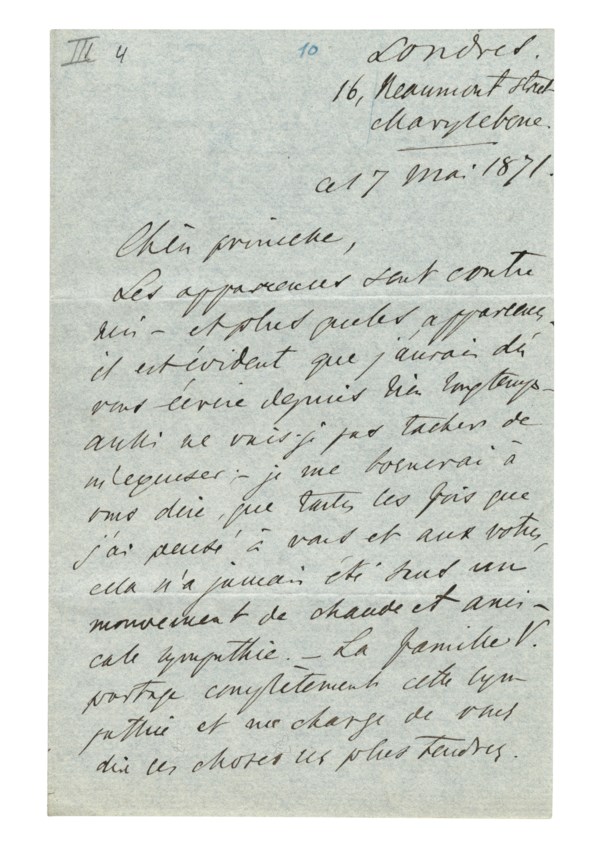 III 4 10
Londres.
16, Beaumont street
Marylebone.
ce 17 Mai 1871.
Chère princesse,
Les apparences sont contre
moi – et plus que les apparences,
il est évident que j'aurais dû
vous écrire depuis bien longtemps –
aussi ne vais-je pas tacher de
m'excuser; – je me bornerai à
vous dire, que toutes les fois que
j'ai pensé à vous et aux votres,
cela n'a jamais été sans un
mouvement de chaude et ami-
cale sympathie. – La famille V.
partage complètement cette sym-
pathie et me charge de vous
dire les choses les plus tendres.